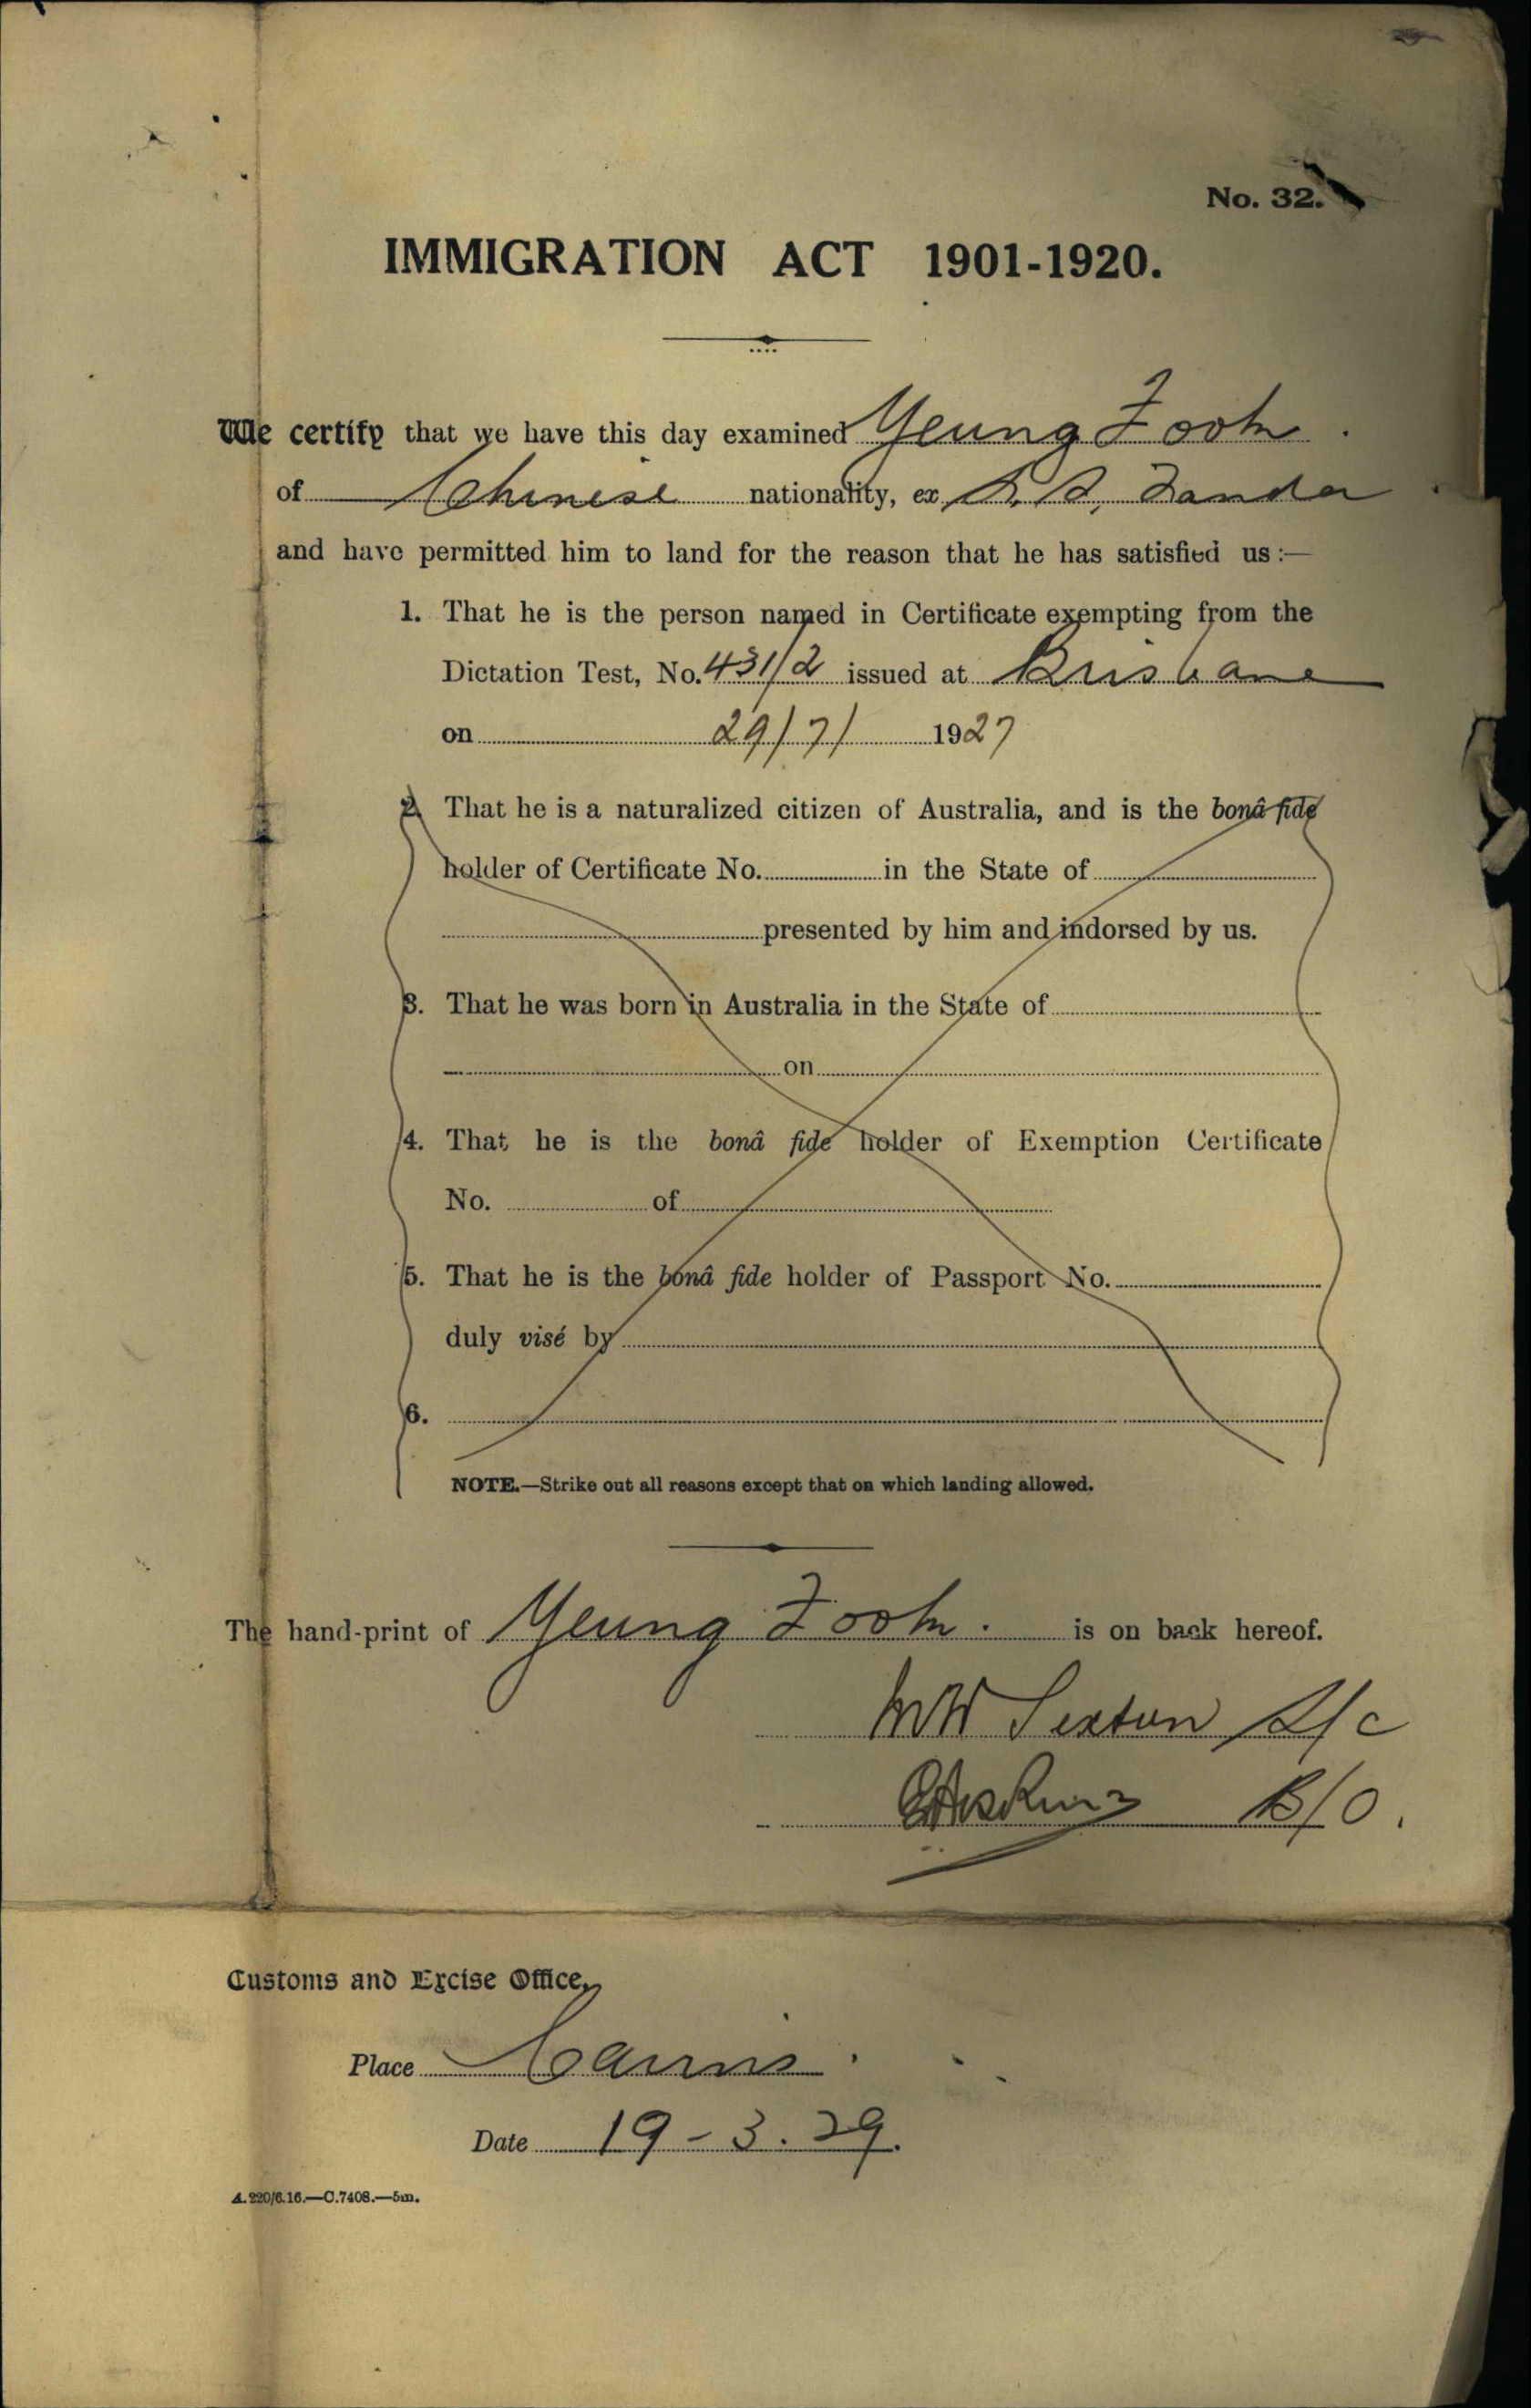 No. 32.
IMMIGRATION ACT 1901-1920.
We certify that we have this day examined Yeung Fook.
of Chinese nationality, ex S.S. Tanda
and have permitted him to land for the reason that he has satisfied us:—
1. That he is the person named in Certificate exempting from the
Dictation Test, No. 431/2 issued at Brisbane
on 29/7/ 1927
2. That he is a naturalized citizen of Australia, and is the bonâ fide
holder of Certificate No. in the State of
presented by him and indorsed by us.
3. That he was born in Australia in the State of
on
4. That he is the bonâ fide holder of Exemption Certificate
No. of
5. That he is the bonâ fide holder of Passport No.
duly visé by
6.
NOTE.—Strike out all reasons except that on which landing allowed.
The hand-print of Yeung Fook. is on back hereof.
Sexton S/c
B/O.
Customs and Excise Office,
Place Cairns.
Date 19-3.29.
A.220/6.16.—C.7408.—5m.